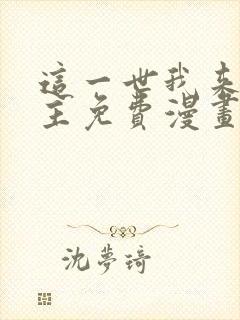 這一世我來
主免費漫畫
沈夢琦